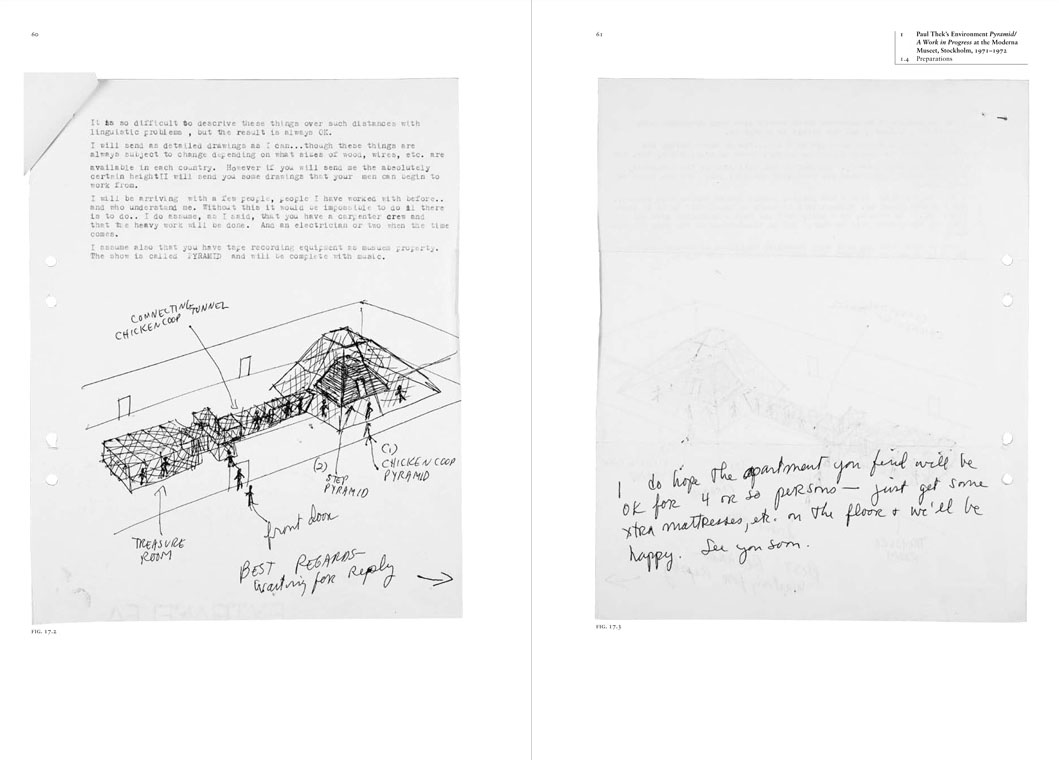 60
It is so difficult to descrive these things over such distances with
linguistic problems , but the result is always OK.
I will send as detailed drawings as I can...though these things are
always subject to change depending on what sizes of wood, wires, etc. are
available in each country.  However if you will send me the absolutely
certain height I will send you some drawings that your  men can begin to
work from.
I will be arriving  with a few people, people I have worked with before..
and who understand me. Without this it would be impossible to do all there
is to do.. I do assume, as I said, that you have a carpenter crew and
that the heavy work will be done.  And an electrician or two when the time
comes.
I assume also that you have tape recording equipment as museum property.
The show is called  PYRAMID  and will be complete with music.
CONNECTING TUNNEL
CHICKEN COOP
(1)
CHICKEN COOP
PYRAMID
(2)
STEP
PYRAMID
front door
TREASURE
ROOM
BEST REGARDS—
Waiting for Reply
FIG. 17.2
61
1 Paul Thek's Environment Pyramid/
A Work in Progress at the Moderna
Museet, Stockholm, 1971–1972
1.4 Preparations
I do hope the apartment you find will be
OK for 4 or so persons — just get some
xtra mattresses, etc. on the floor + we'll be
happy. See you soon.
FIG. 17.3